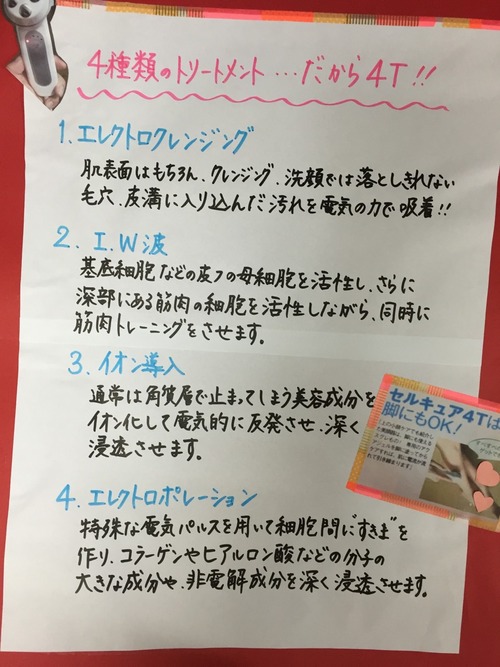 4種類のトリートメント…だから4T!!
1.エレクトロクレンジング
肌表面はもちろん、クレンジング、洗顔では落としきれない
毛穴、皮溝に入り込んだ汚れを電気の力で吸着!!
2.I.W波
基底細胞などの皮フの母細胞を活性し、さらに
深部にある筋肉の細胞を活性しながら、同時に
筋肉トレーニングをさせます。
3.イオン導入
通常は角質層で止まってしまう美容成分を
イオン化して電気的に反発させ、深く
浸透させます。
セルキュア4Tは
脚にもOK!
4.エレクトロポレーション
特殊な電気パルスを用いて細胞間に"すきま"を
作り、コラーゲンやヒアルロン酸などの分子の
大きな成分や、非電解成分を深く浸透させます。